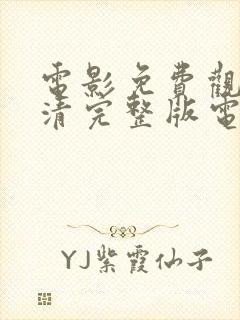 電影免費觀
清完整版電
YJ紫霞仙子